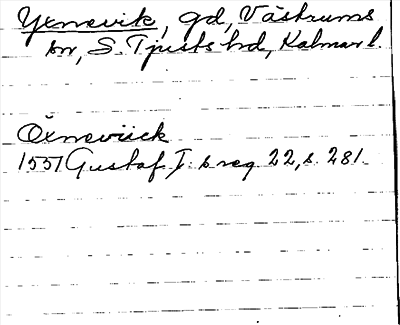 Yxnevik, gd, Västrums
sn, S. Tjusts hd, Kalmar l.
Öxneviick
1551 Gustaf I:s reg 22, s. 281.